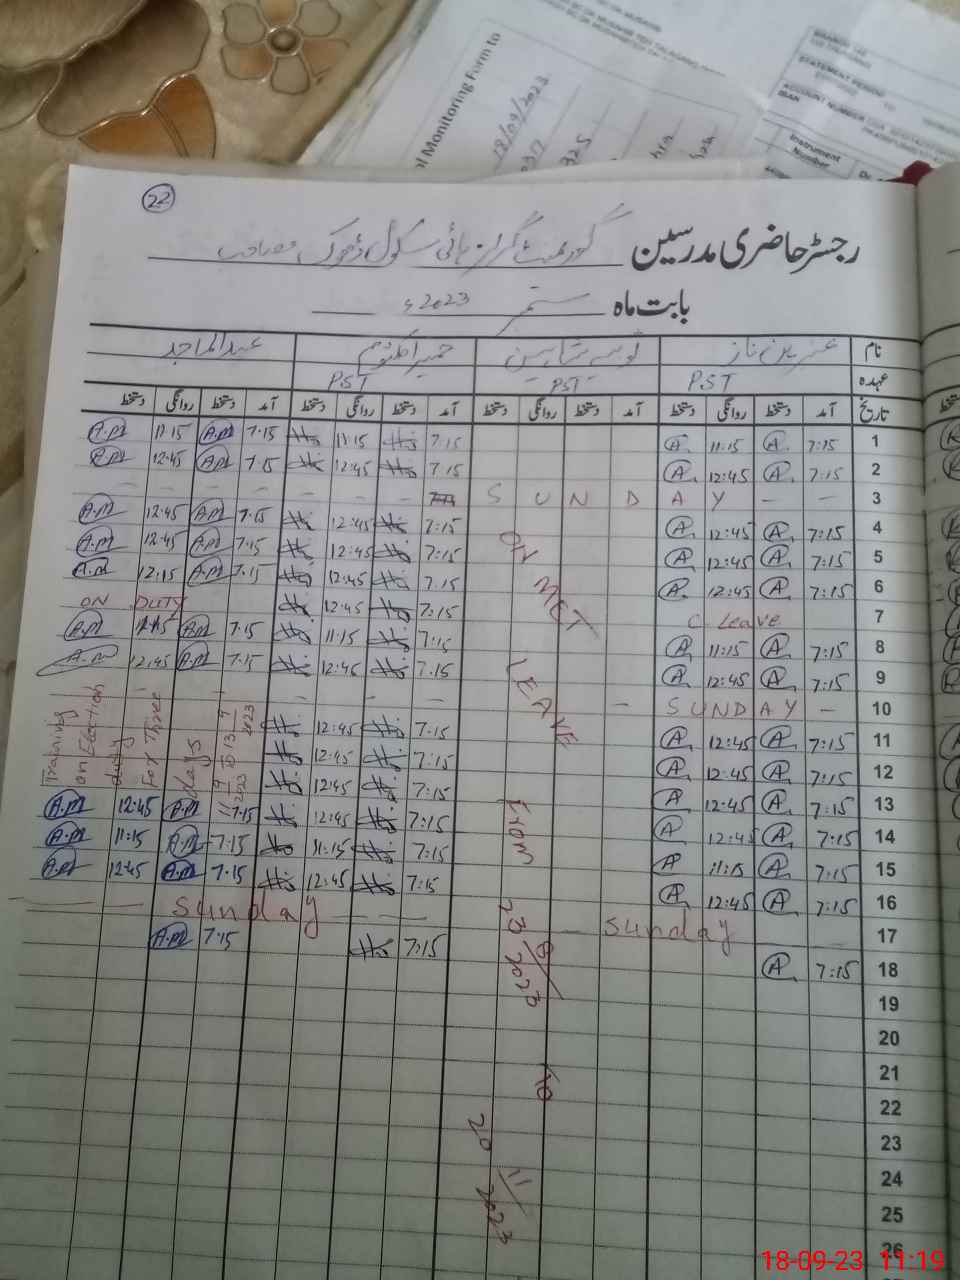 Monitoring Form to
18/09/2023
STATEMENT PERIOD
ACCOUNT NUMBER
IBAN
Instrument
Number
22
رجسٹر حاضری مدرسین گورنمنٹ گرلز ہائی سکول ڈھوک مصاحب
بابت ماہ ستمبر 2023ء
نام عنبرین ناز حمیرا کلثوم عبدالماجد
عہدہ PST PST PST
تاریخ آمد دستخط روانگی دستخط آمد دستخط روانگی دستخط آمد دستخط روانگی دستخط آمد دستخط روانگی دستخط
1 7:15 A. 11:15 A. 7:15 11:15 7:15 A.M 11:15 A.M
2 7:15 A. 12:45 A. 7:15 12:45 7:15 A.M 12:45 A.M
3 SUNDAY
4 7:15 A. 12:45 A. 7:15 12:45 7:15 A.M 12:45 A.M
5 7:15 A. 12:45 A. 7:15 12:45 7:15 A.M 12:45 A.M
6 7:15 A. 12:45 A. 7:15 12:45 7:15 A.M 12:15 A.M
7 C. Leave 7:15 12:45 ON DUTY
8 7:15 A. 11:15 A. 7:15 11:15 7:15 A.M A.M
9 7:15 A. 12:45 A. 7:15 12:45 7:15 A.M 12:45 A.M
10 SUNDAY
11 7:15 A. 12:45 A. 7:15 12:45
12 7:15 A. 12:45 A. 7:15 12:45
13 7:15 A. 12:45 A. 7:15 12:45
14 7:15 A. 12:45 A 7:15 12:45 7:15 A.M 12:45 A.M
15 7:15 A. 11:15 A 7:15 11:15 7:15 A.M 11:15 A.M
16 7:15 A. 12:45 A. 7:15 12:45 7:15 A.M 12:45 A.M
17 Sunday Sunday
18 7:15 A. 7:15 7:15 A.M
19
20
21
22
23
24
25
26
ON MET LEAVE From 23/8/2023 to 20/11/2023
Training on Election duty For Three days 11/9/2023 to 13/9/2023
18-09-23 11:19